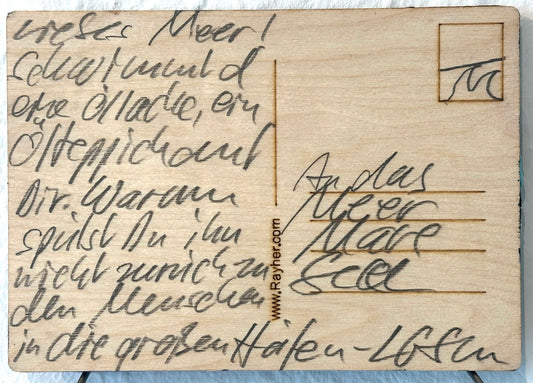 Liebes Meer!
Schwimmt d
eine Öllache, ein
Ölteppich auf
Dir. Warum
spülst Du ihn
nicht zurück zu
den Menschen
in die großen Häfen -
An das
Meer
Mare
See
www.Rayher.com